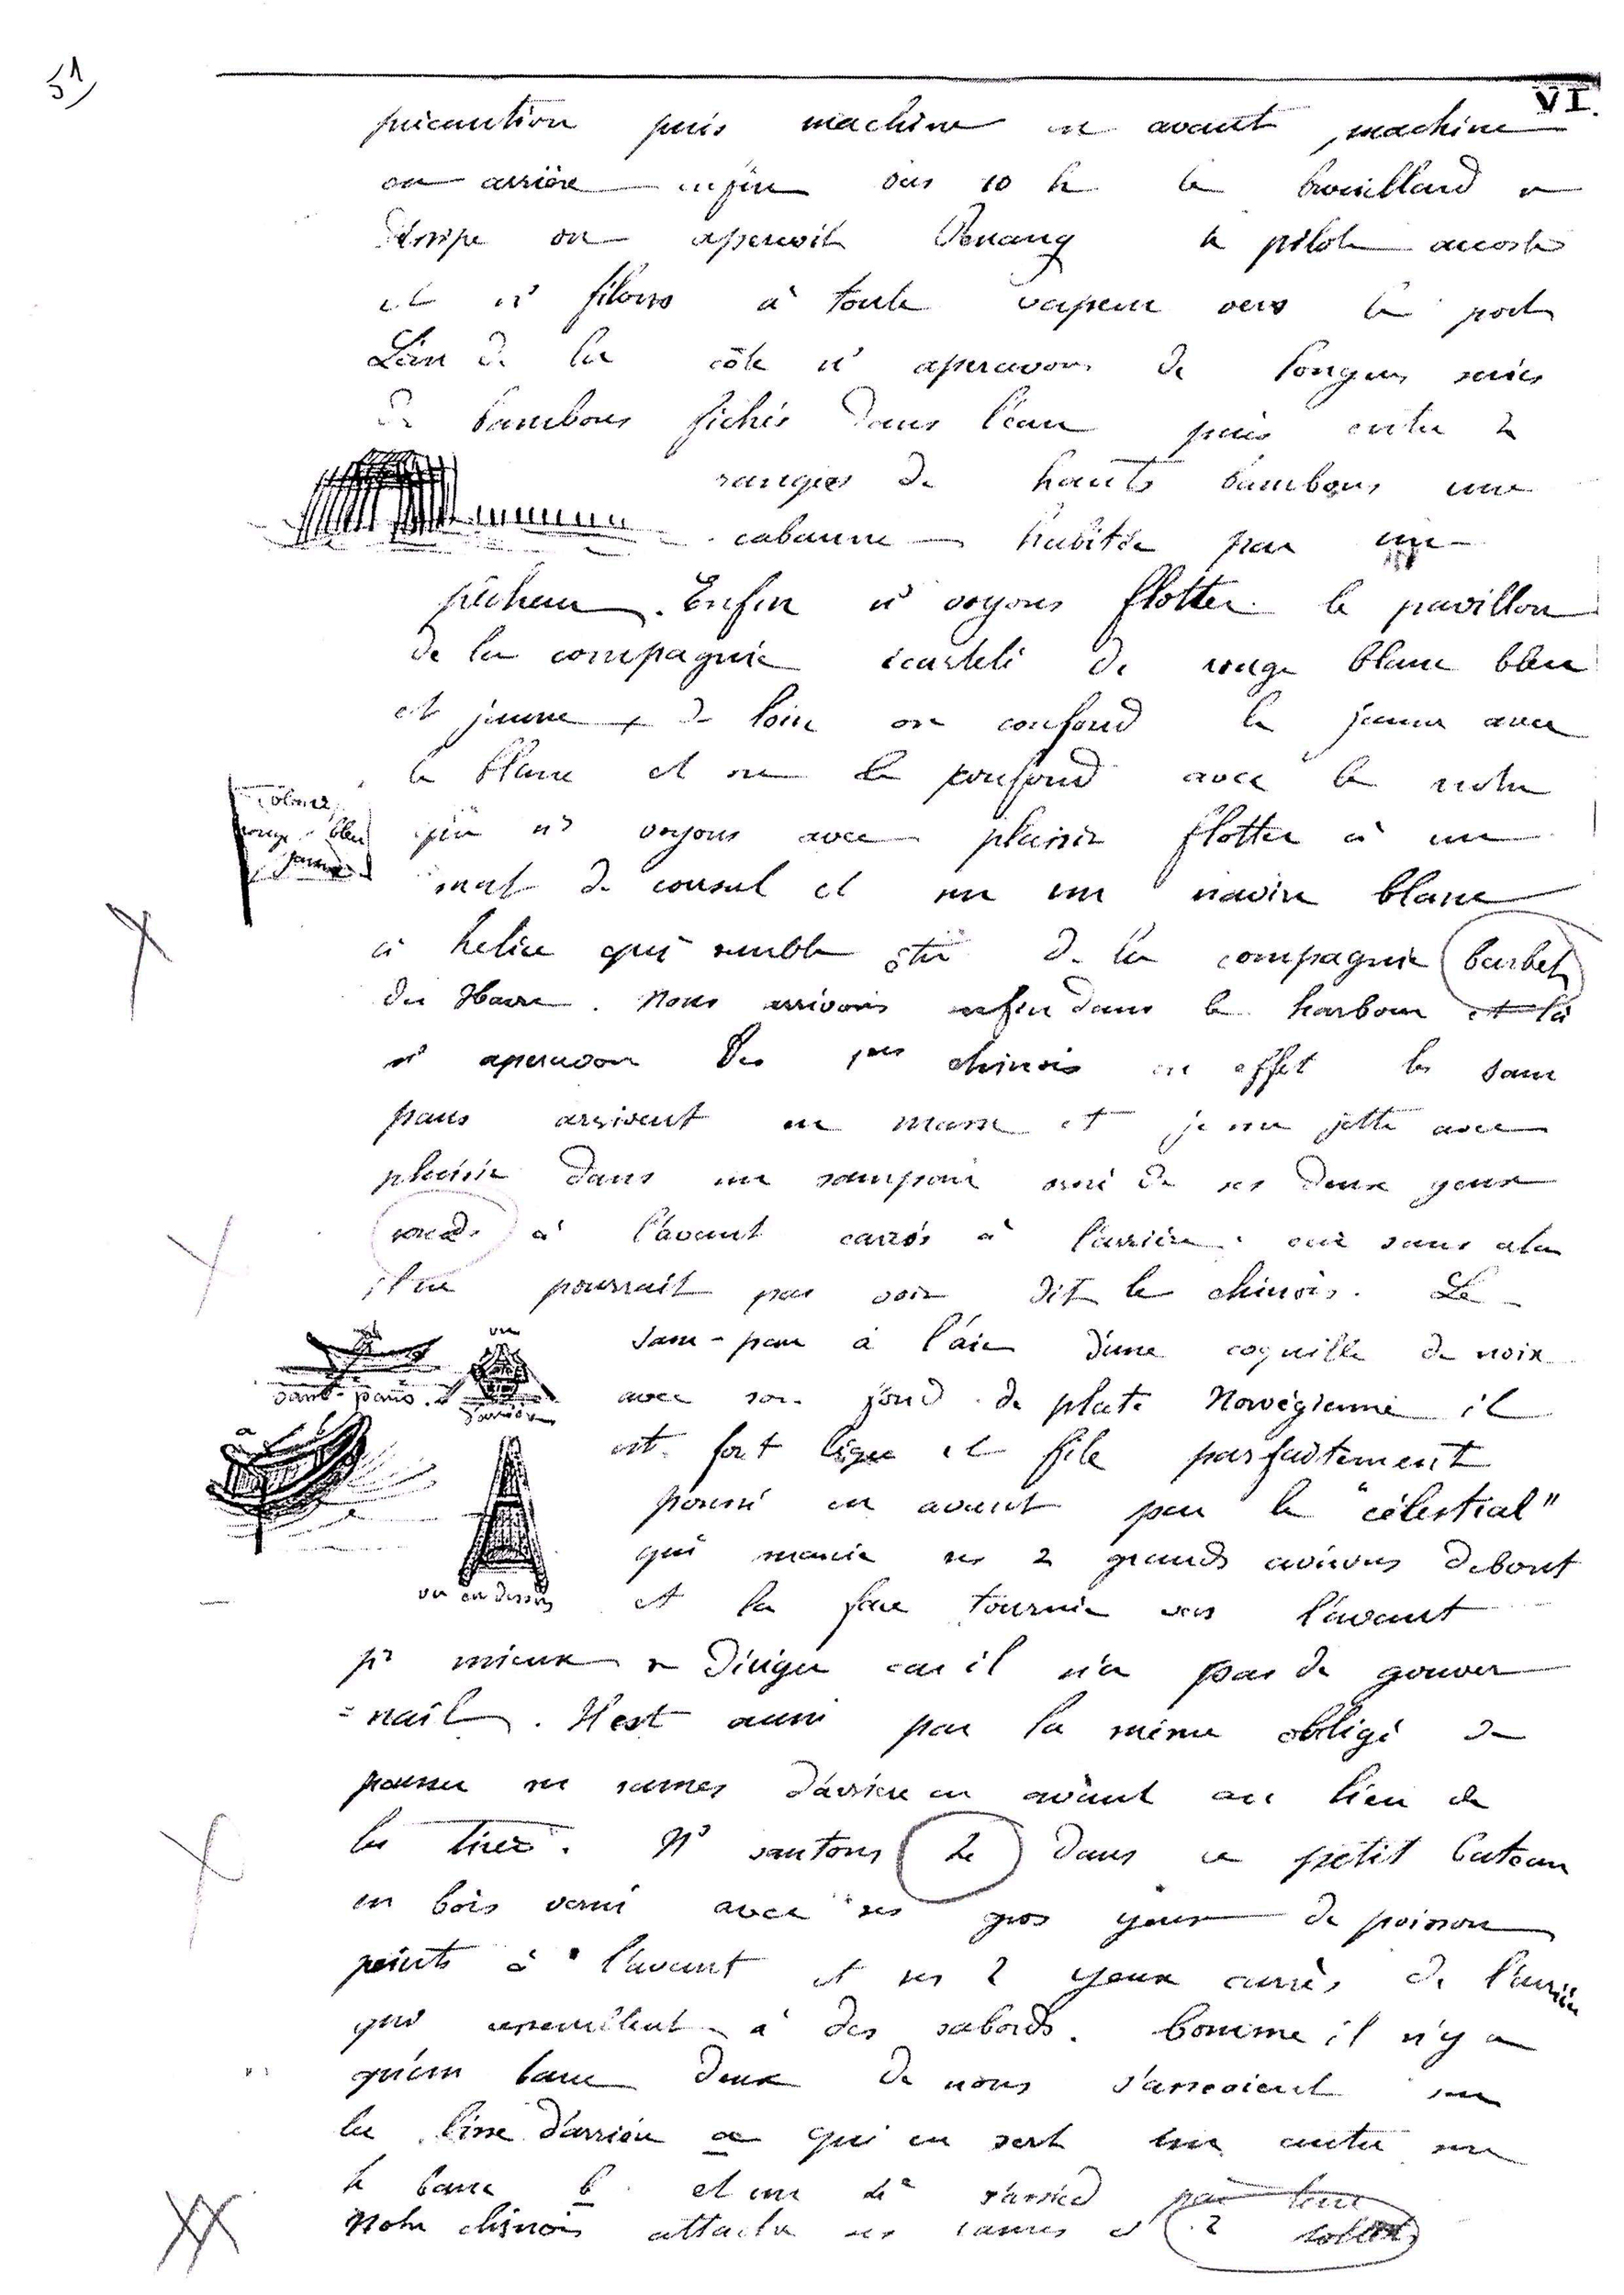 51
VI.
précaution puis machine en avant machine
en arrière enfin vers 10 h le brouillard se
dissipe on aperçoit Penang le pilote accoste
et ns filons à toute vapeur vers le port
Loin de la côte ns apercevons de longues séries
de bambous fichés dans l'eau puis entre 2
rangées de hauts bambous une
cabanne habitée par un
pêcheur. Enfin ns voyons flotter le pavillon
de la compagnie écartelé de rouge blanc bleu
et jaune + de loin on confond le jaune avec
le blanc et on le confond avec le notre
blanc
rouge bleu
jaune
que ns voyons avec plaisir flotter à un
mat de consul et sur un navire blanc
à helice qui semble être de la compagnie barbet
du Havre. Nous arrivons enfin dans le harbour et là
ns apercevon les 1ers chinois en effet les sam
pans arrivent en masse et je me jette avec
plaisir dans un sampan orné de ses deux yeux
ronds à l'avant carrés à l'arrière. car sans cela
il ne pourrait pas voir dit le chinois. Le
sam-pan à l'air d'une coquille de noix
vu
sam-pans.
d'arrière
avec son fond de plate Norvégienne il
est fort léger et file parfaitement
a b
poussé en avant par le "célestial"
qui manie ses 2 grands avirons debout
vu en dessus
et la face tournée vers l'avant
pr mieux se diriger car il n'a pas de gouver
=nail. Il est aussi par la même obligé de
pousser ses rames d'arrière en avant au lieu de
les tirer. Ns sautons 4 dans ce petit bateau
en bois verni avec ses gros yeux de poisson
peints à l'avant et ses 2 yeux carrés de l'arrière
qui ressemblent à des sabords. Comme il n'y a
qu'un banc deux de nous s'asseoient sur
la lisse d'arrière a qui en sert un autre sur
le banc b et un 4e s'assied par terre
Notre chinois attache ses rames et 2